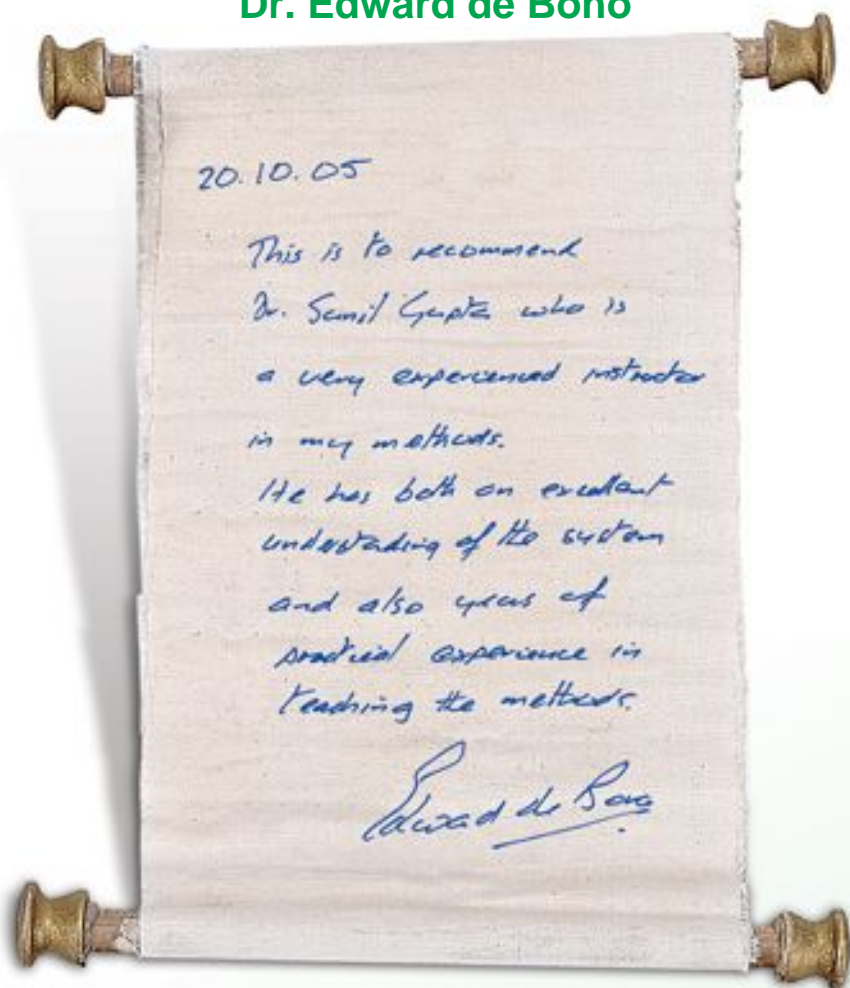 Dr. Edward de Bono
20.10.05
This is to recommend
Dr. Sunil Gupta who is
a very experienced instructor
in my methods.
He has both an excellent
understanding of the system
and also years of
practical experience in
teaching the methods.
Edward de Bono